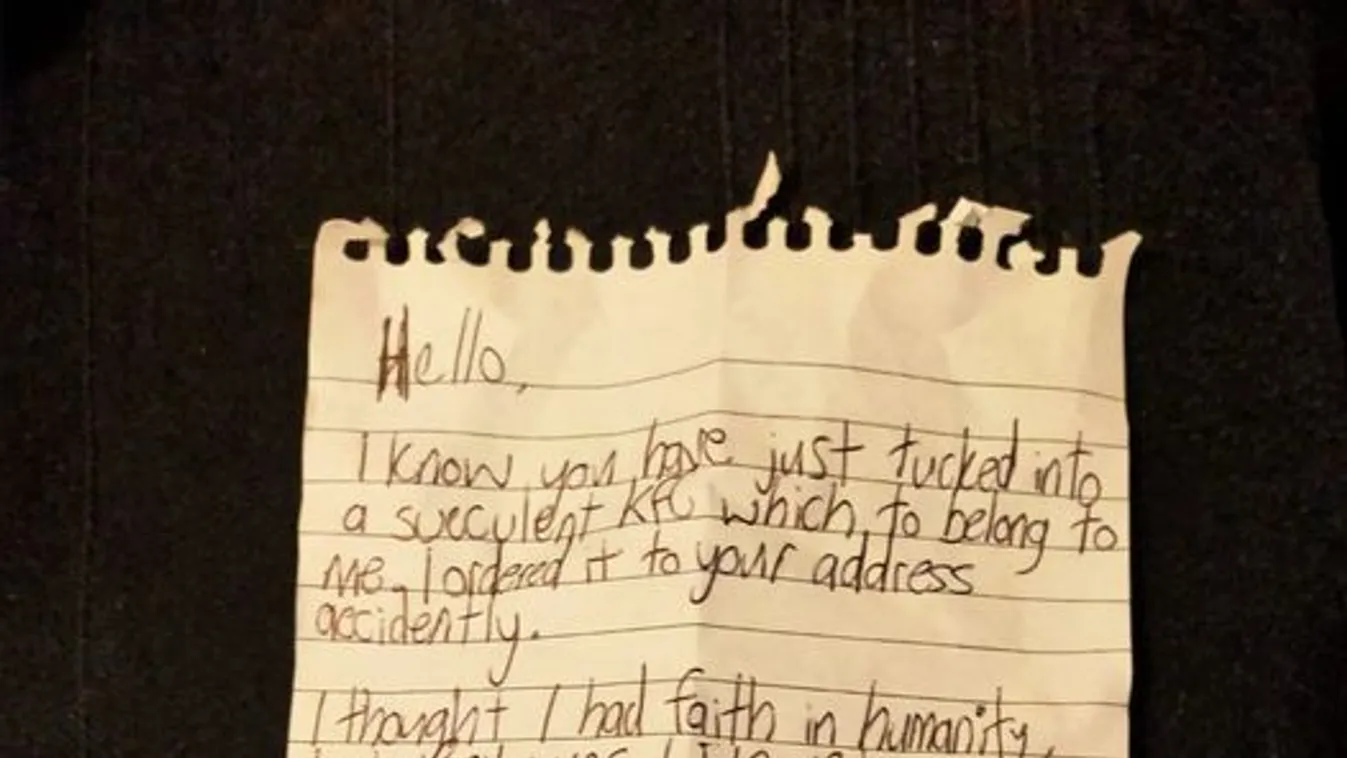 Hello,
I know you have just tucked into
a succulent KFC which, to belong to
me, I ordered it to your address
accidently.
I thought I had faith in humanity,